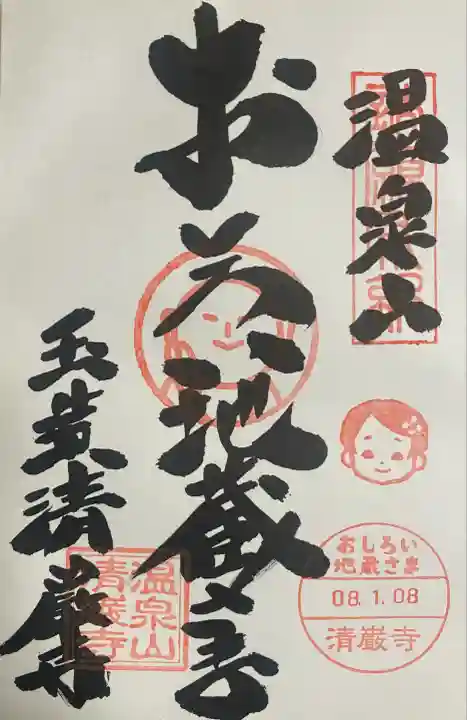 温泉山
お美地蔵尊
玉造清巌寺
温泉山
清巌寺
おしろい
地蔵さま
08.1.08
清巌寺